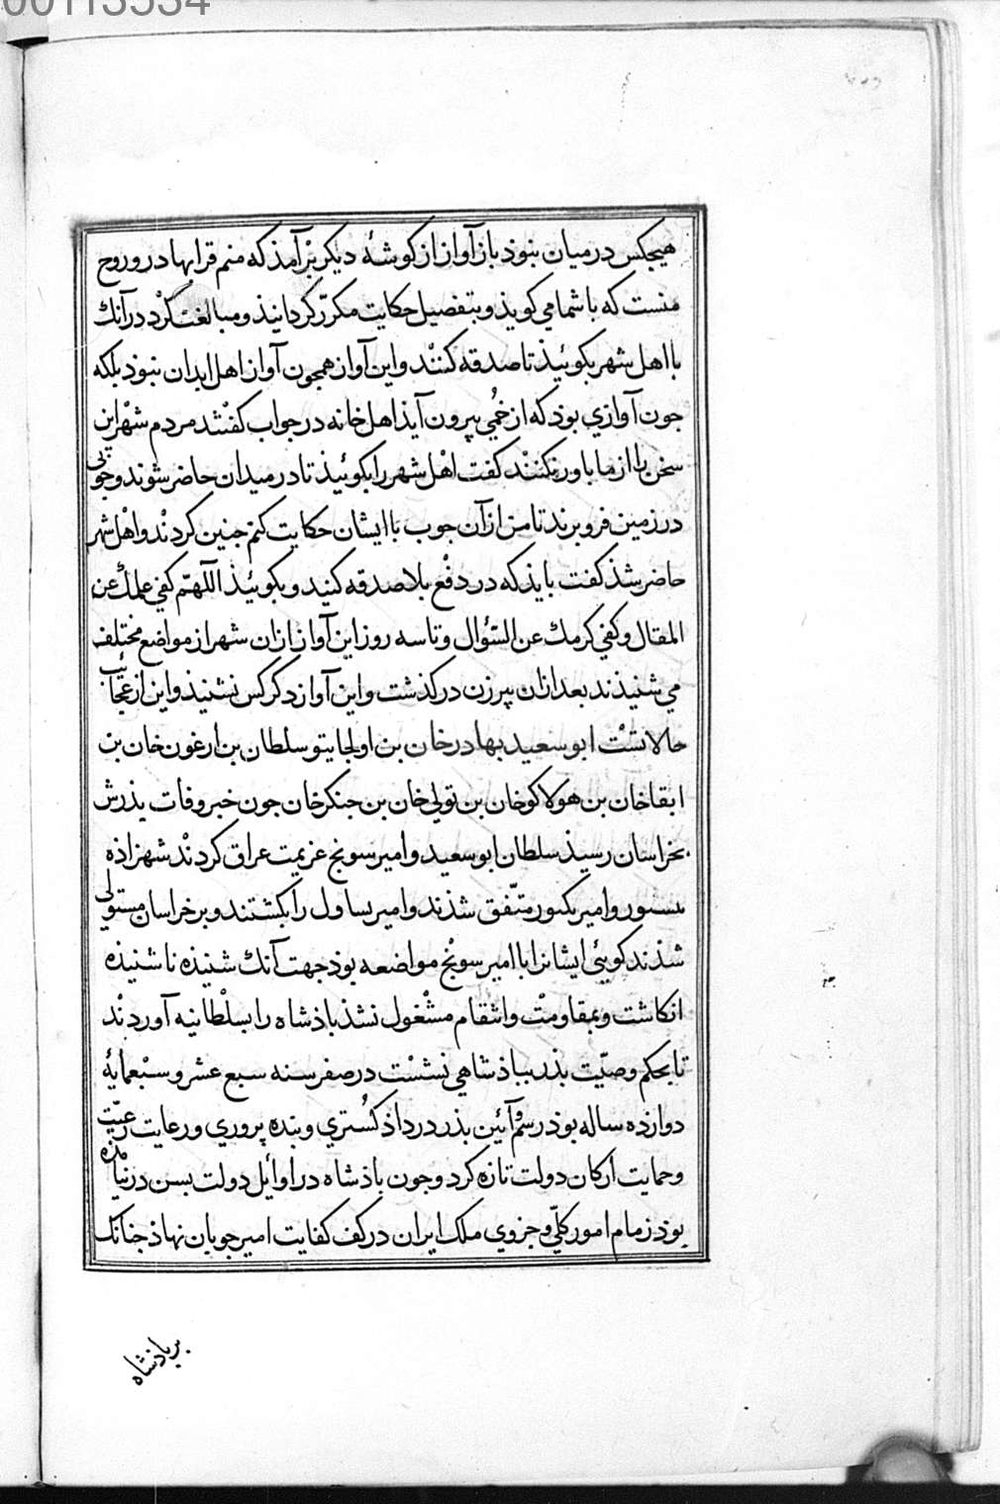 00113534
هیچکس در میان نبوذ باز آواز از کوشهٔ دیکر بر آمذ که منم قرابهادر و روح
منست که با شما می کویذ و بتفصیل حکایت مکرّر کردانیذ و مبالغت کرد در آنک
با اهل شهر بکوئیذ تا صدقه کنند و این آواز همچون آواز اهل ابدان نبوذ بلکه
جون آوازی بوذ که از خُمی بیرون آیذ اهل خانه در جواب کفتند مردم شهر این
سخن را از ما باور نکنند کفت اهل شهر را بکوئیذ تا در میدان حاضر شوند و جوبی
در زمین فرو برند تا من از آن جوب با ایشان حکایت کنم جنین کردند و اهل شهر
حاضر شذ کفت بایذ که در دفع بلا صدقه کنید و بکوئیذ اللّهمّ کفی علمك عن
المقال و کفی کرمك عن السّؤال و تا سه روز این آواز ازان شهر از مواضع مختلف
می شنیذند بعد ازان پیر زن در کذشت و این آواز دکر کس نشنیذ و این از عجائب
حالاتست ابو سعید بهادر خان بن اولجایتو سلطان بن ارغون خان بن
ابقا خان بن هولاکو خان بن تولی خان بن جنکز خان جون خبر وفات بذرش
بخراسان رسیذ سلطان ابو سعید و امیر سونج عزیمت عراق کردند شهزاذه
و امیر بکتور متّفق شذند و امیر یساول را بکشتند و بر خراسان مستولی
شذند کوئی ایشانرا با امیر سونج مواضعه بوذ جهت آنك شنیذه ناشنیذه
انکاشت و بمقاومت و انتقام مشغول نشذ باذشاه را بسلطانیه آوردند
تا بحکم وصیّت بذر بباذشاهی نشست در صفر سنه سبع عشر و سبعمایهٔ
دوازده ساله بوذ رسم و آئین بذر در داذ کستری و بنده پروری و رعایت رعیّت
و حمایت ارکان دولت تازه کرد و جون باذشاه در اوایل دولت بسن در نیامذه
بوذ زمام امور کلّی و جزوی ملک ایران در کف کفایت امیر جوبان نهاذ جنانک
بر باذشاه